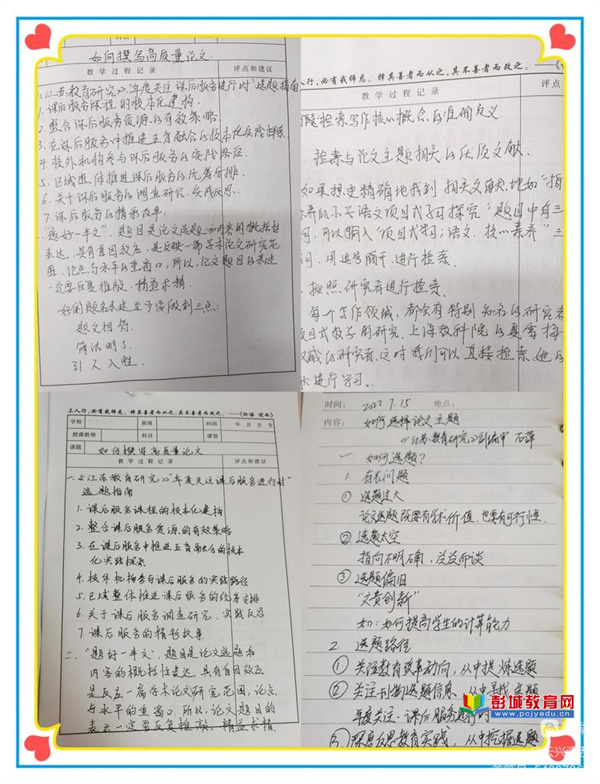 如何撰写高质量论文
教学过程记录
评点和建议
一、《江苏教育研究》年度关注课后服务进行时"选题指南
1. 课后服务课程的校本化建构.
2. 整合课后服务资源的有效策略
3. 在课后服务中推进五育融合的校本化实践探索.
4. 校外机构参与课后服务的实践路径.
5. 区域整体推进课后服务的统筹安排.
6. 关于课后服务的调查研究、实践反思.
7. 课后服务的精彩故事.
二、"题好一半文",题目是论文选题和内容的概括性
表达,具有首因效应,是反映一篇学术论文研究范
围、论点与水平的重要窗口,所以,论文题目的表述
一定要反复推敲,精益求精.
好的题名表述至少要做到三点:
题文相符
简洁明了
引人入胜.
人行,必有我师焉。择其善者而从之,其不善者而改之。
评点
检索写作核心概念的准确定义
检索与论文主题相关的优质文献.
如果想更精确地找到相关文献,比如"指
语文项目式学习探究"题目中有三
词,可以输入"项目式学习;语文,核心素养"三
词,用逗号隔开,进行检索.
按照研究者进行检索.
每个工作领域,都会有特别知名的研究者
项目式教学的研究,上海教科院的夏雪梅
权威的研究者,这时我们可以直接检索她的
进行学习.
三人行,必有我师焉。择其善者而从之,其不善者而改之。——《论语·述而》
学校
班级
时间
年 月 日 节
授课教师
科目
课型
课题
如何撰写高质量论文
教学过程记录
评点和建议
一、《江苏教育研究》"年度关注课后服务进行时"
选题指南
1. 课后服务课程的校本化建构
2. 整合课后服务资源的有效策略
3. 在课后服务中推进五育融合的校本
化实践探索
4. 校外机构参与课后服务的实践路径
5. 区域整体推进课后服务的统筹安排
6. 关于课后服务调查研究、实践反思
7. 课后服务的精彩故事
二、"题好一半文",题目是论文选题和
内容的概括性表达,具有首因效应
是反应一篇学术论文研究范围、论点
与水平的重要窗口,所以,论文题目的
表示一定要反复推敲,精益求精
时间: 2022.7.15 地点:
内容: 如何选择论文主题
《江苏教育研究》副编审 石萍
一 如何选题?
1. 存在问题
① 选题过大
论文选题既要有学术价值,也要有可行性.
② 选题太空
指向不明确,泛泛而谈
③ 选题偏旧
"文贵创新"
如: 如何提高学生的计算能力
2. 选题路径
① 关注教育改革动向,从中提炼选题
② 关注刊物选题信息,从中寻找
年度关注:课后服务进行时
③ 深度反思教育实践,从中挖掘选题
彭城教育网
www.pcjyedu.cn